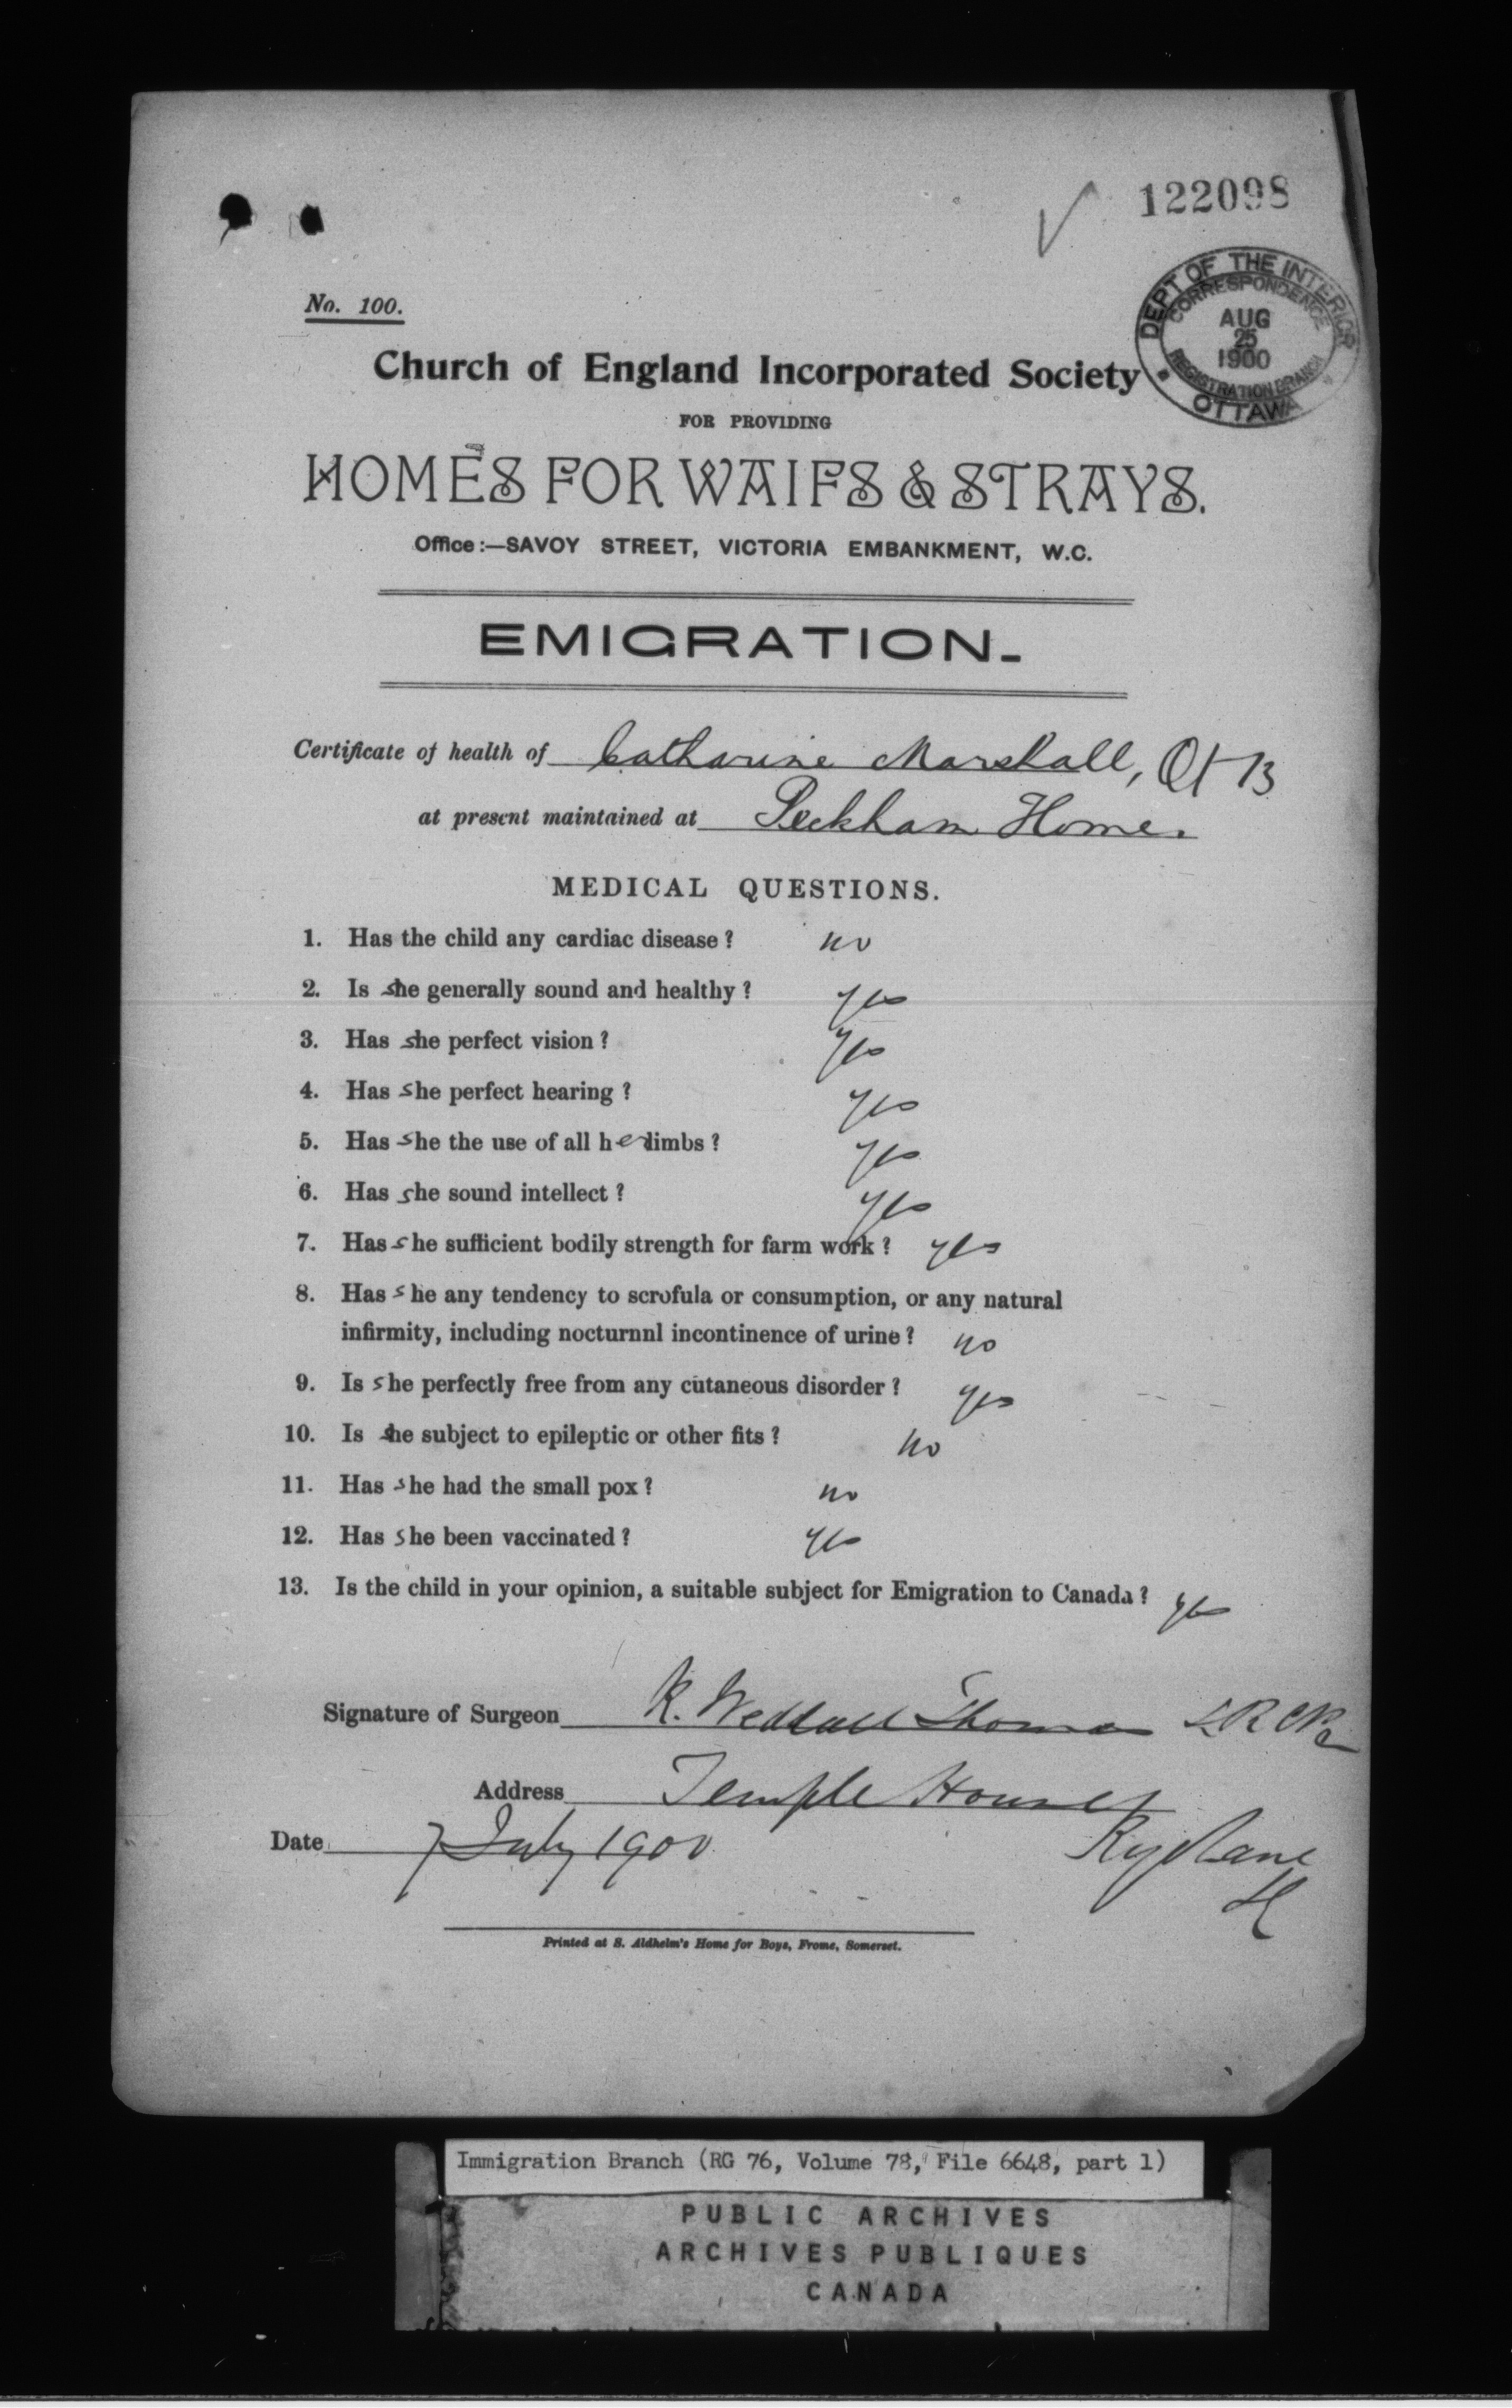 122098
DEPT OF THE INTERIOR
CORRESPONDENCE
AUG
25
1900
REGISTRATION BRANCH
OTTAWA
No. 100.
Church of England Incorporated Society
FOR PROVIDING
HOMES FOR WAIFS & STRAYS.
Office:—SAVOY STREET, VICTORIA EMBANKMENT, W.C.
EMIGRATION-
Certificate of health of Catharine Marshall, 13
at present maintained at Peckham Home.
MEDICAL QUESTIONS.
1. Has the child any cardiac disease? no
2. Is she generally sound and healthy? yes
3. Has she perfect vision? yes
4. Has she perfect hearing? yes
5. Has she the use of all her limbs? yes
6. Has she sound intellect? yes
7. Has she sufficient bodily strength for farm work? yes
8. Has she any tendency to scrofula or consumption, or any natural
infirmity, including nocturnnl incontinence of urine? no
9. Is she perfectly free from any cutaneous disorder? yes
10. Is she subject to epileptic or other fits? no
11. Has she had the small pox? no
12. Has she been vaccinated? yes
13. Is the child in your opinion, a suitable subject for Emigration to Canada? yes
Signature of Surgeon R. Thomas
Address Temple House
Date 7 July 1900
Rye Lane
Printed at S. Aldhelm's Home for Boys, Frome, Somerset.
Immigration Branch (RG 76, Volume 78, File 6648, part 1)
PUBLIC ARCHIVES
ARCHIVES PUBLIQUES
CANADA